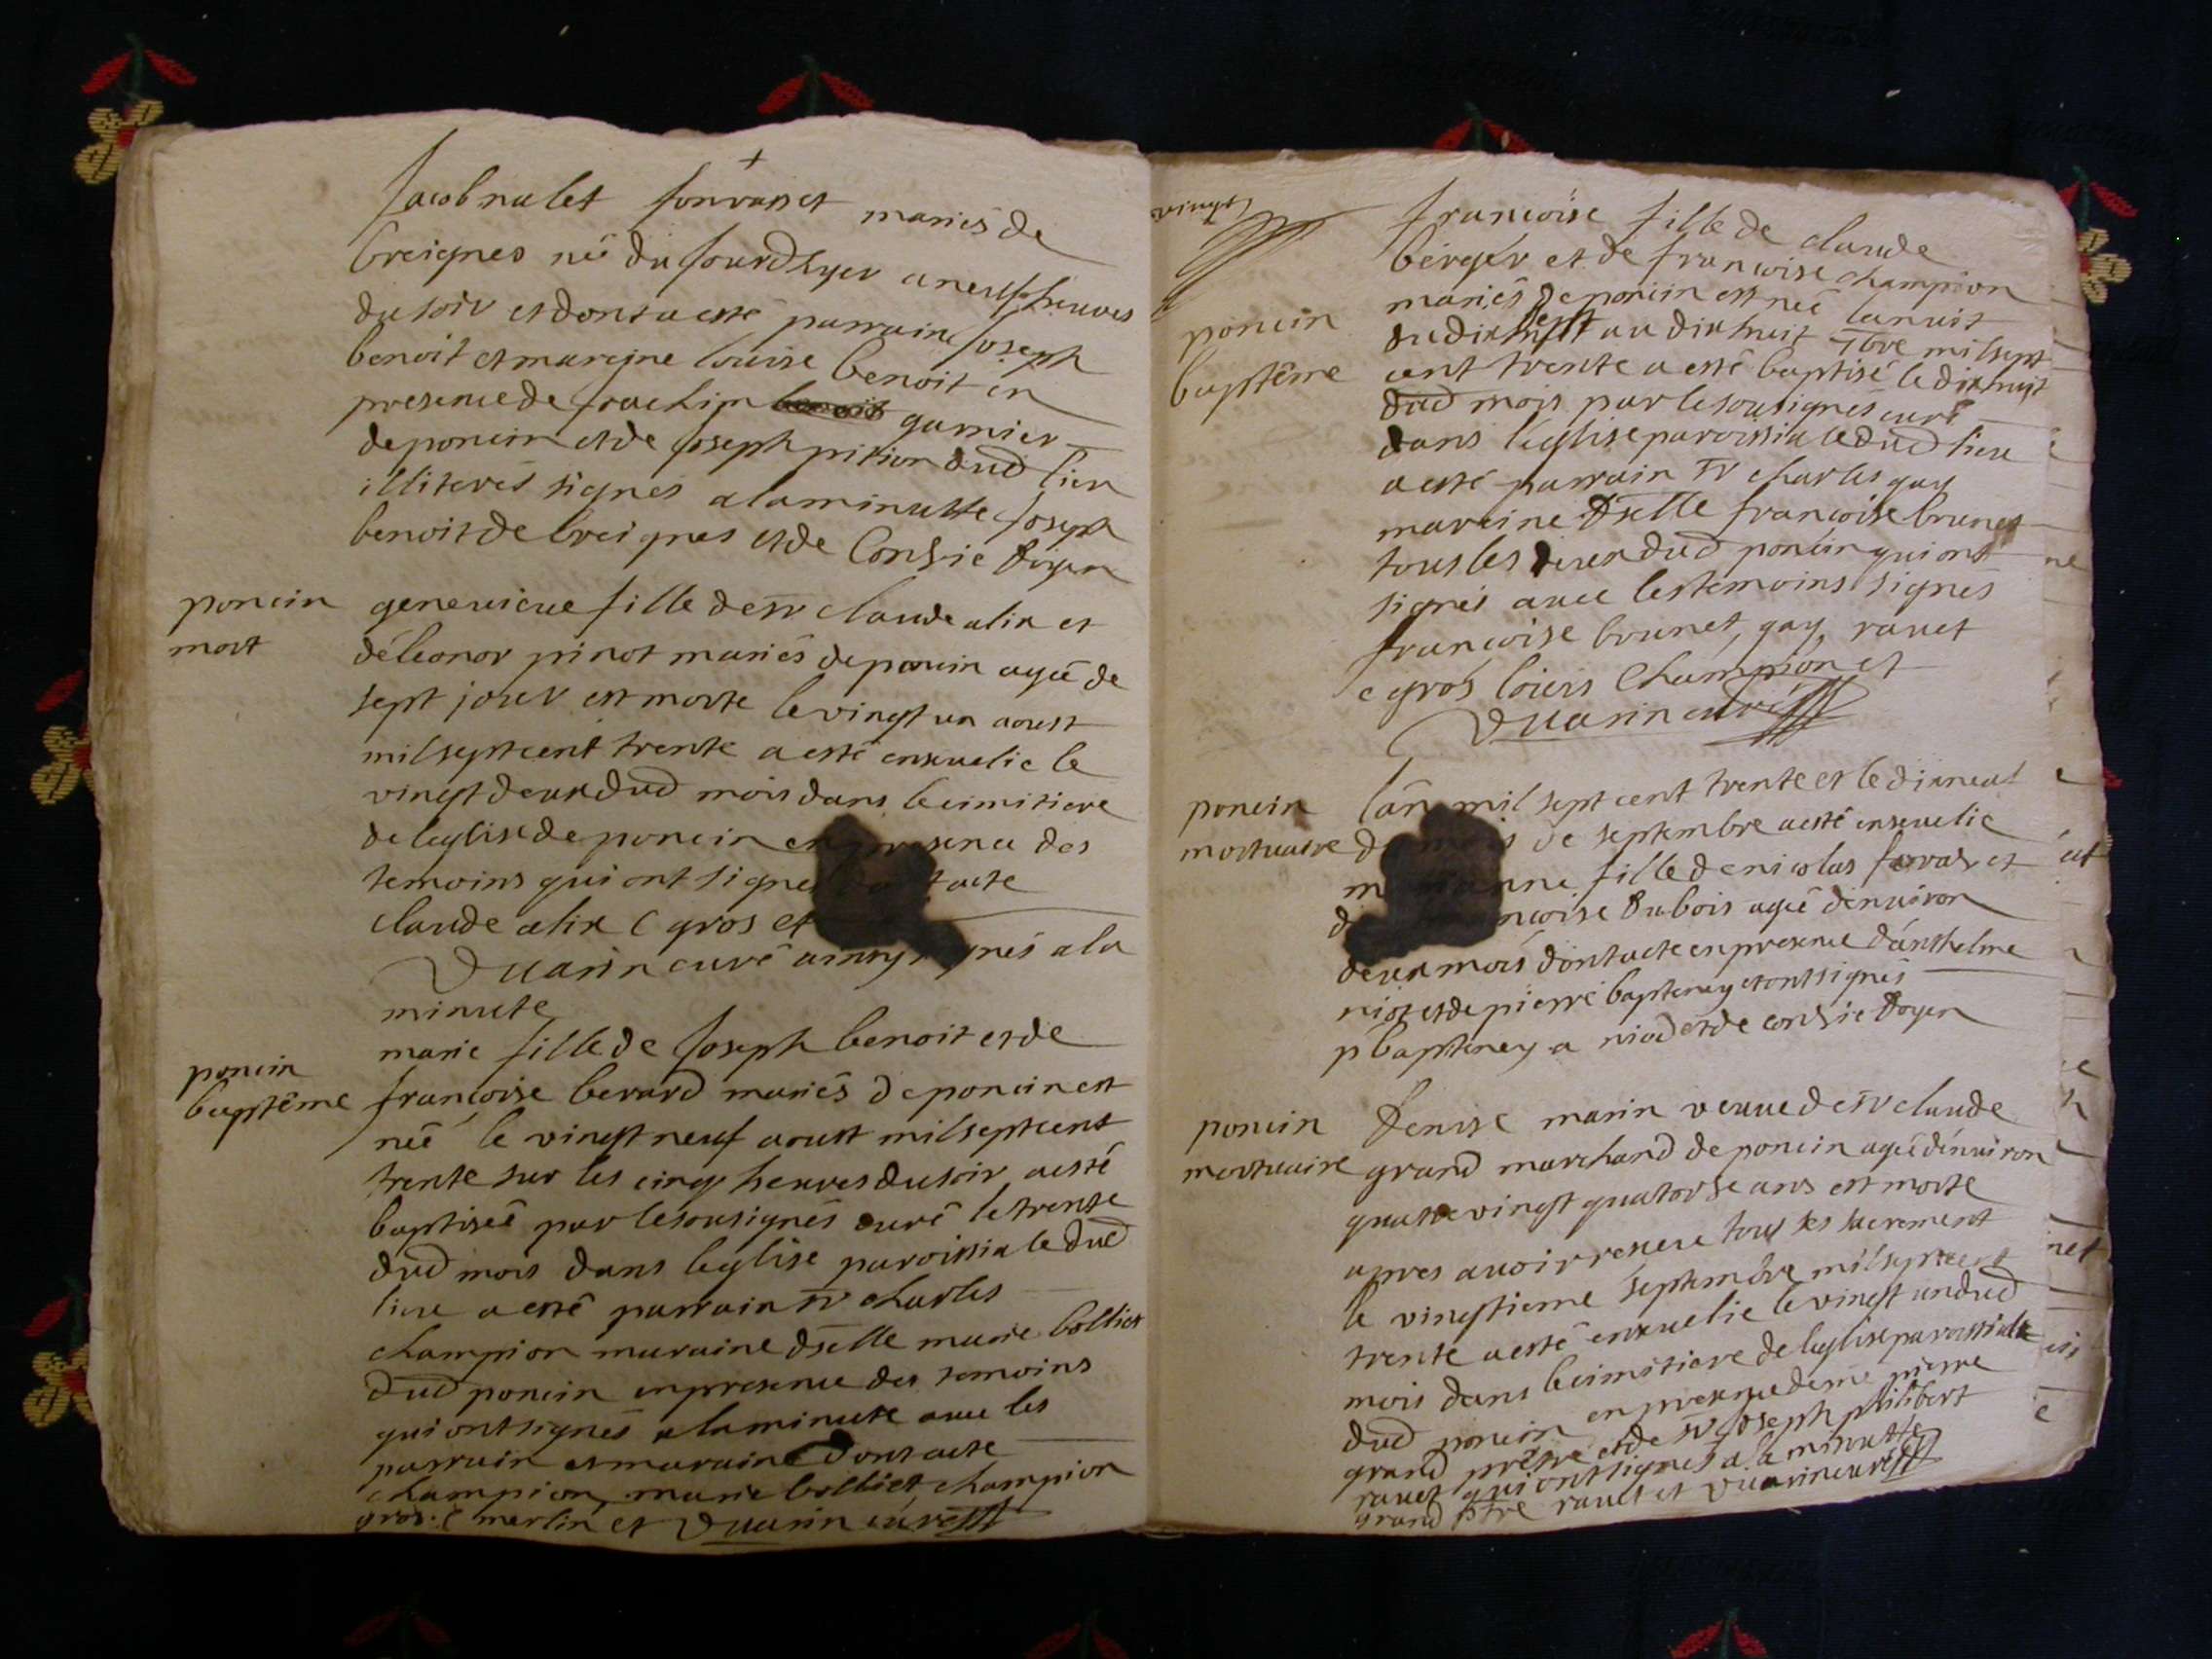 maries de
breignes né du jourdhyer a neuf heures
du soir et dont a esté parrain joseph
benoit et mareine louise benoit en
presence de garnier
de poncin et de joseph pition dud lieu
illiterés signes a la minutte joseph
benoit de breignes et de Conzie doyen
poncin
mort
genevieve fille de sr claude alix et
déleonor pinot mariés de poncin agée de
sept jour est morte le vingt un aoust
mil sept cent trente a esté ensevelie le
vingt deux dud mois dans le cimitiere
de leglise de poncin en presence des
temoins qui ont signes acte
claude alix c gros et
vuarin curé ainsy signés a la
minute
poncin
baptême
marie fille de joseph benoit et de
francoise berard mariés de poncin est
née le vingt neuf aoust mil sept cent
trente sur les cinq heures du soir a esté
baptiseé par le sousignés curé le trente
dud mois dans leglise paroissiale dud
lieu a esté parrain sr charles
champion maraine dselle marie bolliet
dud poncin en presence des temoins
qui ont signés a la minute avec les
parrain et maraine dont acte
champion, marie bolliet, champion
gros. c merlin et vuarin curé
poncin
baptême
francoise fille de claude
berger et de francoise champion
mariés de poncin est neé la nuit
du dix sept au dix huit 7bre mil sept
cent trente a esté baptisé le dix huit
dud mois par le sousignés curé
dans leglise paroissiale dud lieu
a esté parrain sr charles gay
mareine dselle francoise brunet
tous les deux dud poncin qui ont
signés avec les temoins signés
francoise brunet, gay, ravet
c gros louis Champion et
vuarin curé
poncin
mortuaire
lan mil sept cent trente et le dix neuf
du mois de septembre a esté ensevelie
fille de nicolas et
francoise dubois agée denviron
deux mois dont acte en presence danthelme
niod et de pierre bapteney et ont signés
p bapteney a niod et de conzie doyen
poncin
mortuaire
denise marin veuve de sr claude
grand marchand de poncin agée denviron
quatre vingt quatorse ans est morte
apres avoir resseu tous les sacrement
le vingtieme septembre mil sept cent
trente a esté ensevelie le vingt un dud
mois dans le cimitiere de leglise paroissialle
dud poncin en presence de me pierre
grand prêtre et de sr joseph philibert
ravet qui ont signes a la minutte
grand ptre ravet et vuarin curé